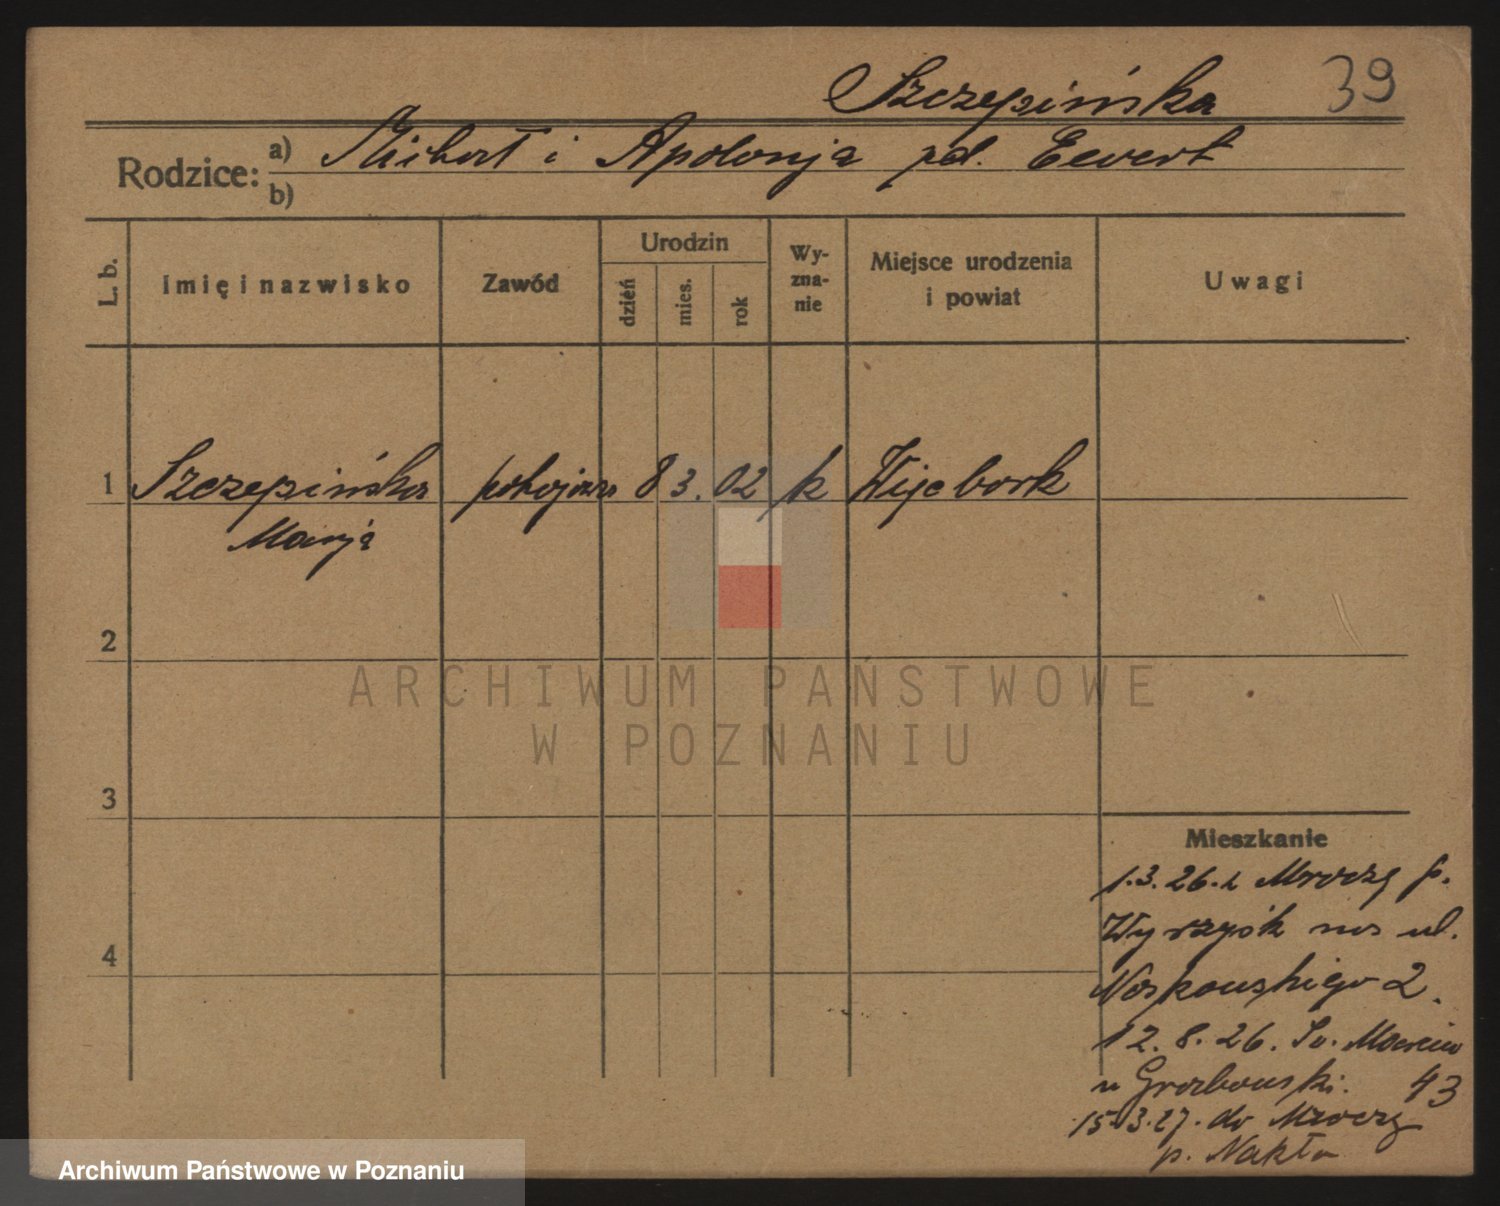 Szczepińska 39
Rodzice: a) Michał i Apolonja pd. Ewert
b)
L. b.
Imię i nazwisko
Zawód
Urodzin
dzień
mies.
rok
Wy-
zna-
nie
Miejsce urodzenia
i powiat
Uwagi
1 Szczepińska pokojowa 8 3. 02 k Więcbork
Marja
2
3
4
ARCHIWUM PAŃSTWOWE
W POZNANIU
Mieszkanie
1.3.26. z Mroczy p.
Wyrzysk na ul.
Noskowskiego 2.
12. 8. 26. Św. Marcin
u Grabowski. 43
15.3.27. do Mroczy
p. Nakło
Archiwum Państwowe w Poznaniu